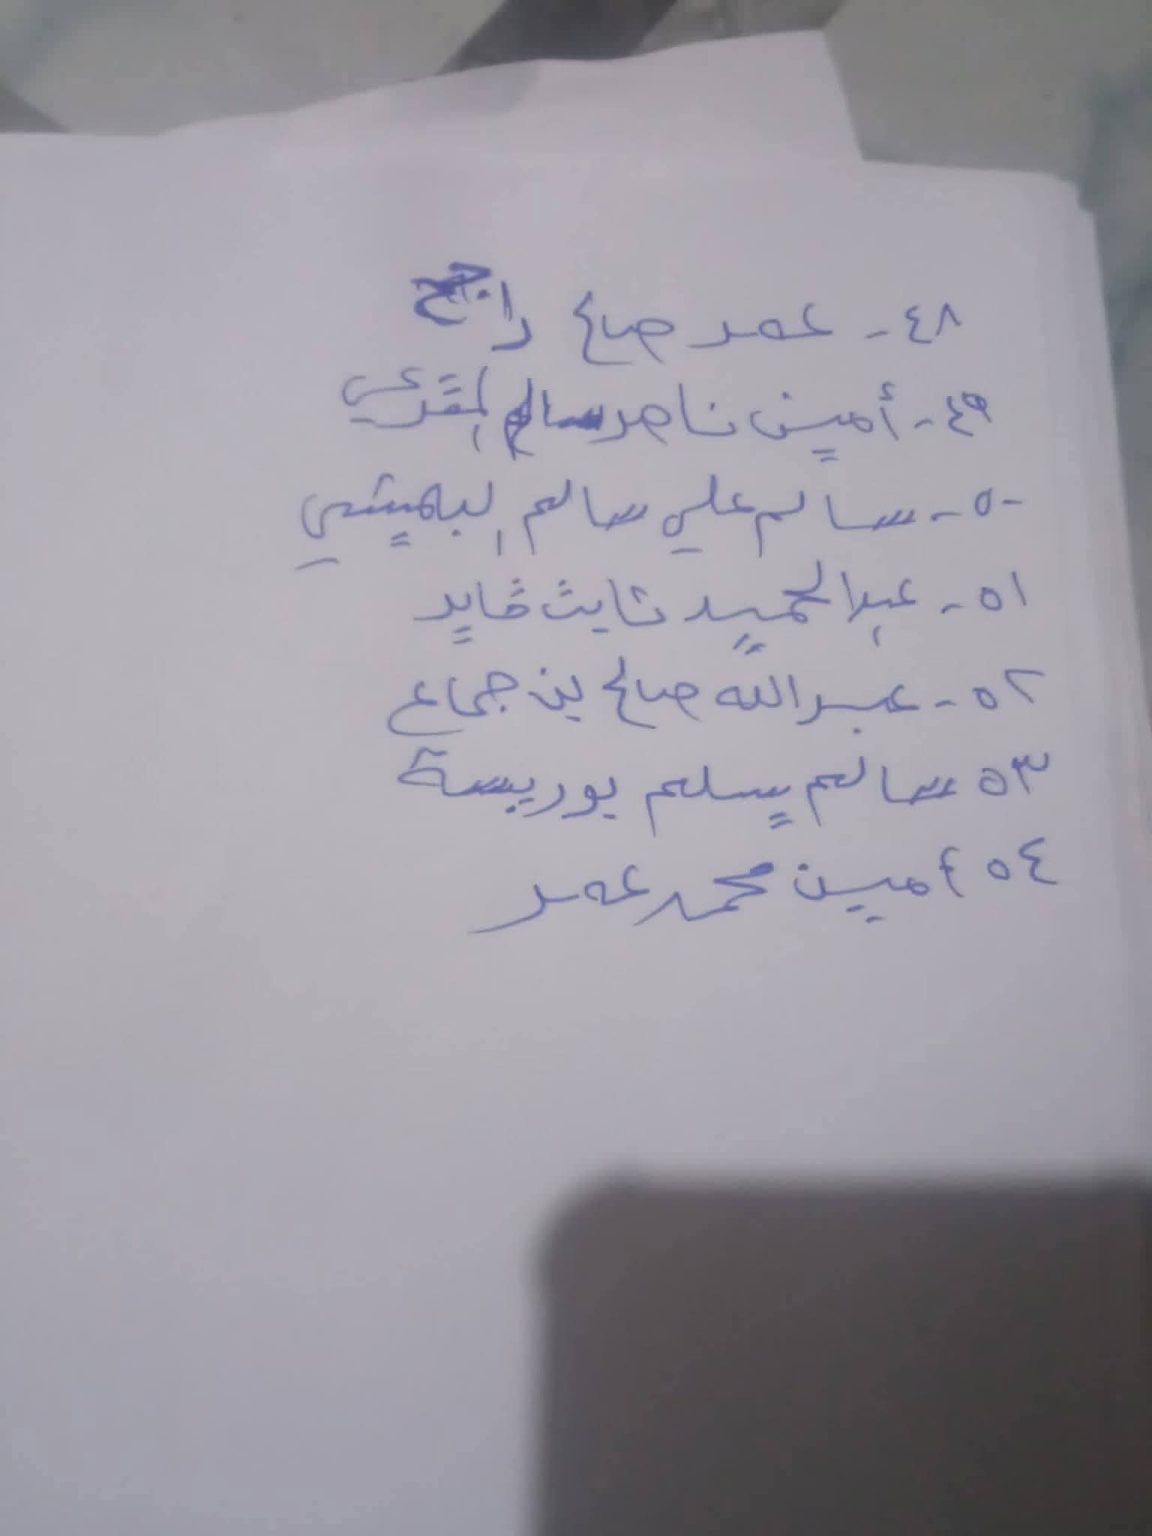 ٤٨- عمر صالح راجح
٤٩- أمين ناصر سالم
٥٠- سالم علي سالم
٥١- عبدالحميد ثابت قايد
٥٢- عبدالله صالح بن جماع
٥٣ سالم يسلم بوريسة
٥٤ أمين محمد عمر